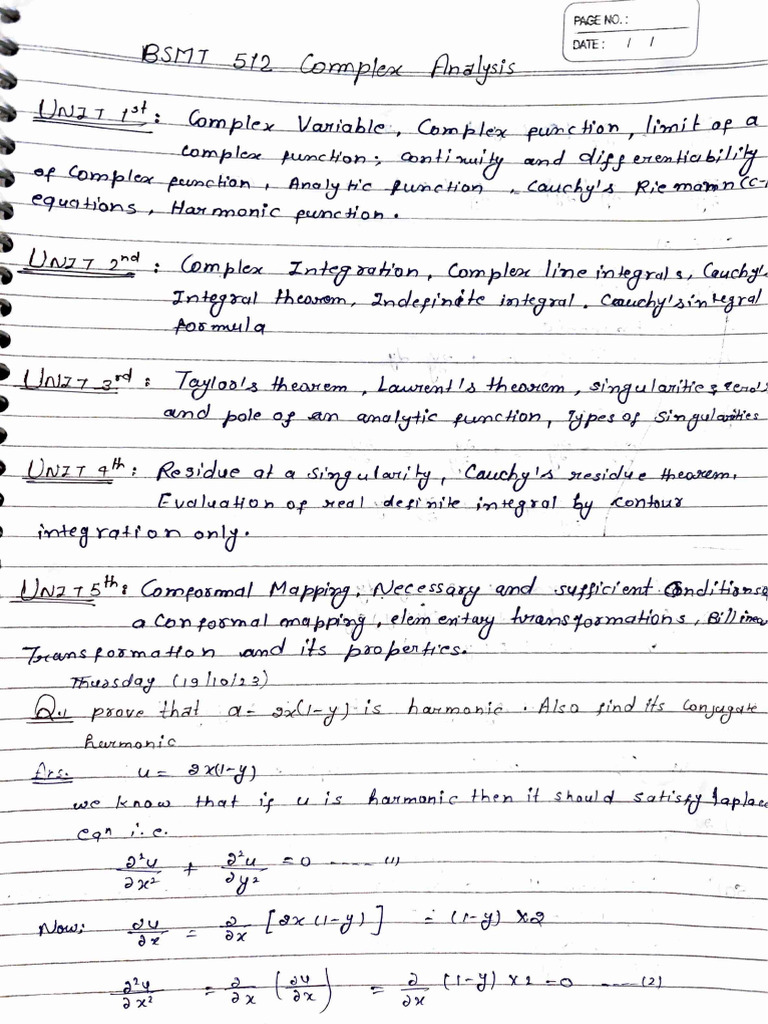 PAGE NO.:
DATE: / /
BSMT 512 Complex Analysis
UNIT 1st: Complex Variable, Complex function, limit of a
complex function, continuity and differentiability
of Complex function, Analytic function, Cauchy's Riemann (C-
equations, Harmonic function.
UNIT 2nd: Complex Integration, Complex line integrals, Cauchy's
Integral theorem, Indefinite integral. Cauchy's integral
formula
UNIT 3rd: Taylor's theorem, Laurent's theorem, singularities zero's
and pole of an analytic function, Types of singularities
UNIT 4th: Residue at a singularity, Cauchy's residue theorem.
Evaluation of real definite integral by contour
integration only.
UNIT 5th: Comformal Mapping, Necessary and sufficient Conditions
a conformal mapping, elementary transformations,
Transformation and its properties.
Thursday (19/10/23)
Q.1 prove that a = 2x(1-y) is harmonic. Also find its conjugate
harmonic
Ans. u = 2x(1-y)
we know that if u is harmonic then it should satisfy laplace
eqn i.e.
∂²u/∂x² + ∂²u/∂y² = 0 ---- (1)
Now: ∂u/∂x = ∂/∂x [2x(1-y)] = (1-y) x2
∂²u/∂x² = ∂/∂x (∂u/∂x) = ∂/∂x (1-y) x2 = 0 ---- (2)